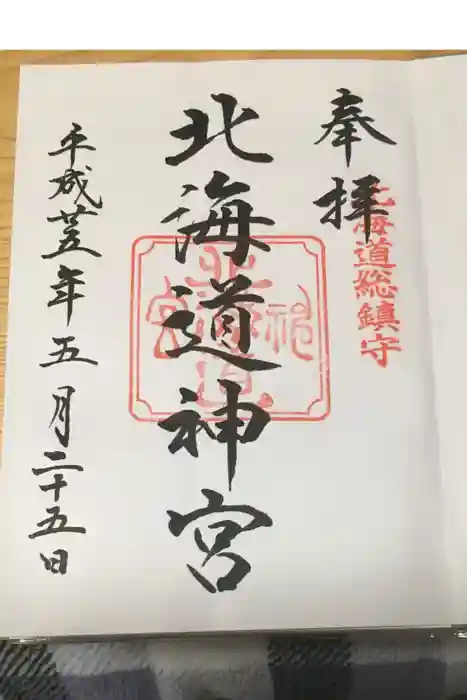 奉拝
北海道総鎮守
北海道神宮
平成廿五年五月二十五日